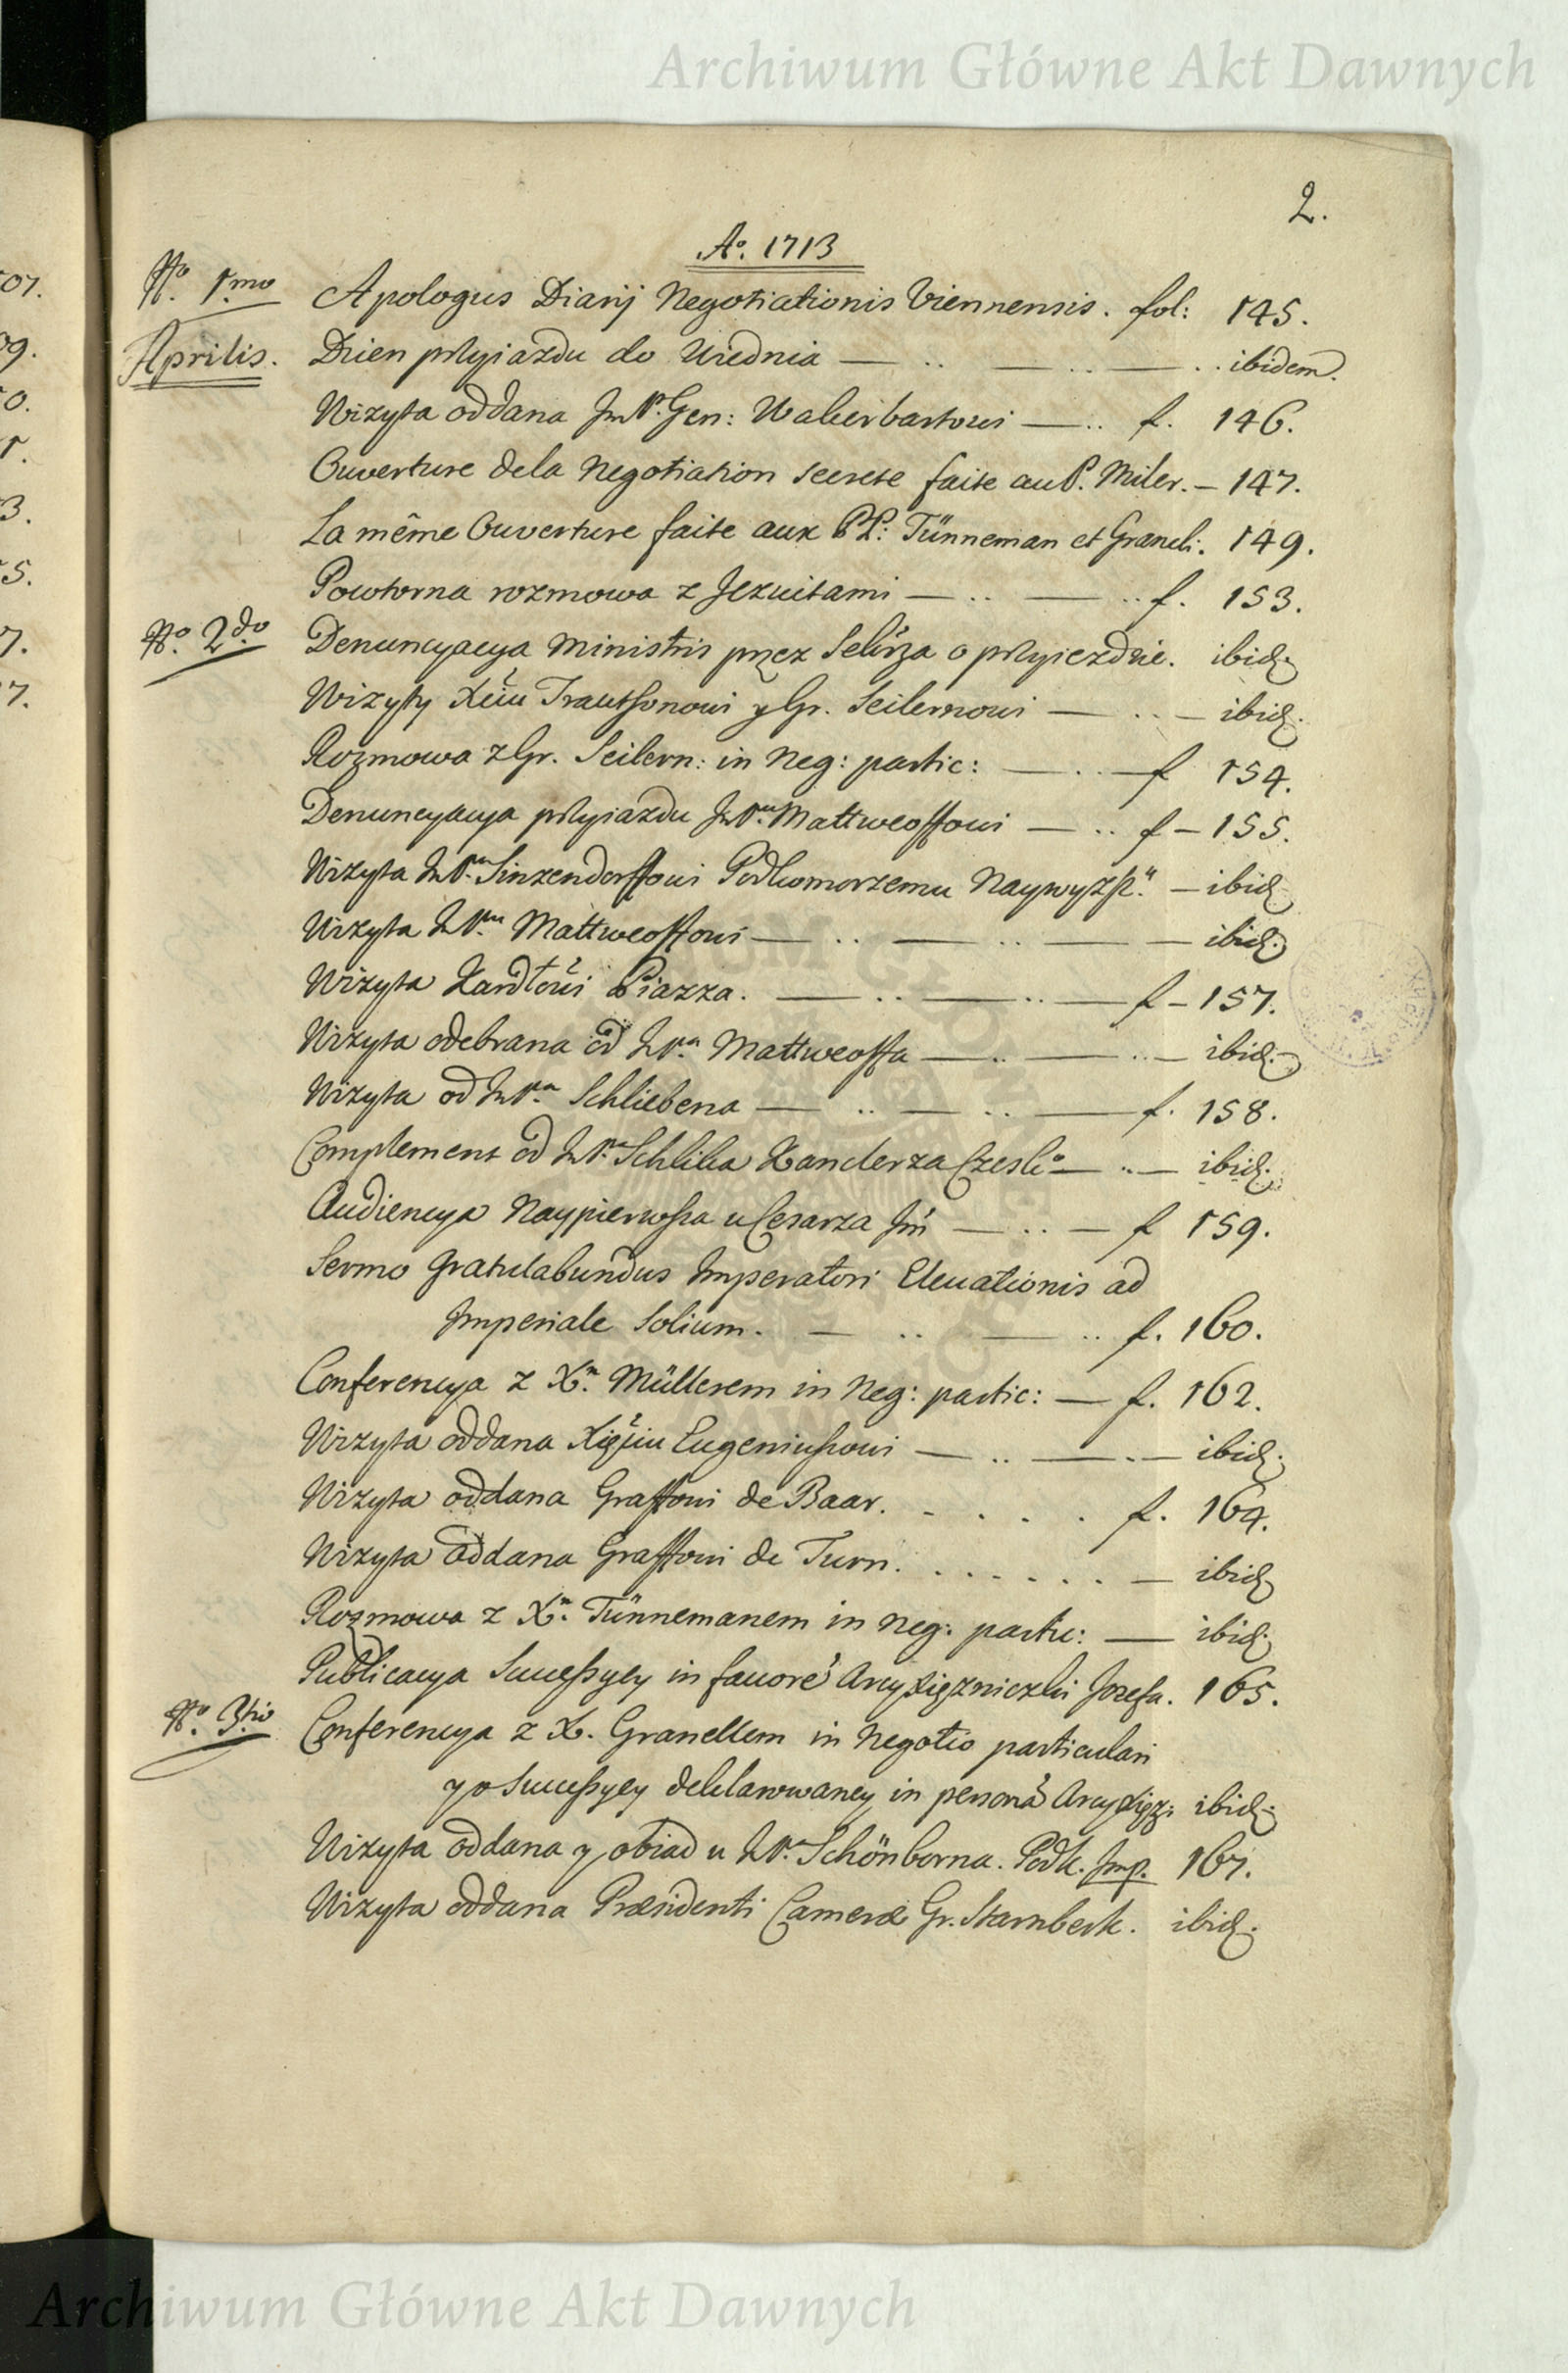 Archiwum Główne Akt Dawnych
2.
Aº. 1713
Nº. 1.mo Apologus Diarij Negotiationis Viennensis. fol: 145.
Aprilis. Dzien przyiazdu do Wiednia — .. — .. — .. ibidem.
Wizyta oddana JmP. Gen: Wakierbartowi — .. f. 146.
Ouverture dela Negotiation secrete faite au P. Miler. — 147.
La même Ouverture faite aux PP: Tünneman et Graneli. 149.
Powtorna rozmowa z Jezuitami — .. — .. f. 153.
Nº. 2.do Denuncyacya Ministris przez Sekrza o przyiezdzie. ibid.
Wizyty Xciu Trautsonowi y Gr. Seilernowi — .. — ibid.
Rozmowa z Gr. Seilern: in Neg: partic: — .. — f 154.
Denuncyacya przyiazdu JmP. Mattweoffowi — .. f — 155.
Wizyta JmP. Sinzendorffowi Podkomorzemu Naywyzszu — ibid.
Wizyta JmP. Mattweoffowi — .. — .. — — ibid.
Wizyta Kardłowi Piazza. — .. — .. — f — 157.
Wizyta odebrana od JmP. Mattweoffa — .. — .. — ibid.
Wizyta od JmP. Schliebena — .. — .. — f. 158.
Complement od JmP. Schlika Kanclerza Czesko — .. — ibid.
Audiencya Naypierwsza u Cesarza Jm — .. — f 159.
Sermo gratulabundus Imperatori Elevationis ad
Imperiale Solium. — .. — .. f. 160.
Conferencya z X. Müllerem in Neg: partic: — f. 162.
Wizyta oddana Xięciu Eugeniuszowi — .. — . — ibid.
Wizyta oddana Graffowi de Baar. . . . . f. 164.
Wizyta oddana Graffowi de Turn. . . . . . . — ibid.
Rozmowa z X. Tünnemanem in Neg: partic: — ibid.
Publicacya Successyey in favorē Arcyxiężniczki Jozefa. 165.
Nº. 3.tio Conferencya z X. Granellem in Negotio particulari
y o Successyey deklarowaney in personā Arcyxięż: ibid.
Wizyta oddana y obiad u JmP. Schönborna. Podk. Imp. 167.
Wizyta oddana Præsidenti Cameræ Gr. Starnberk. ibid.
07.
09.
0.
1.
3.
5.
7.
7.
Archiwum Główne Akt Dawnych